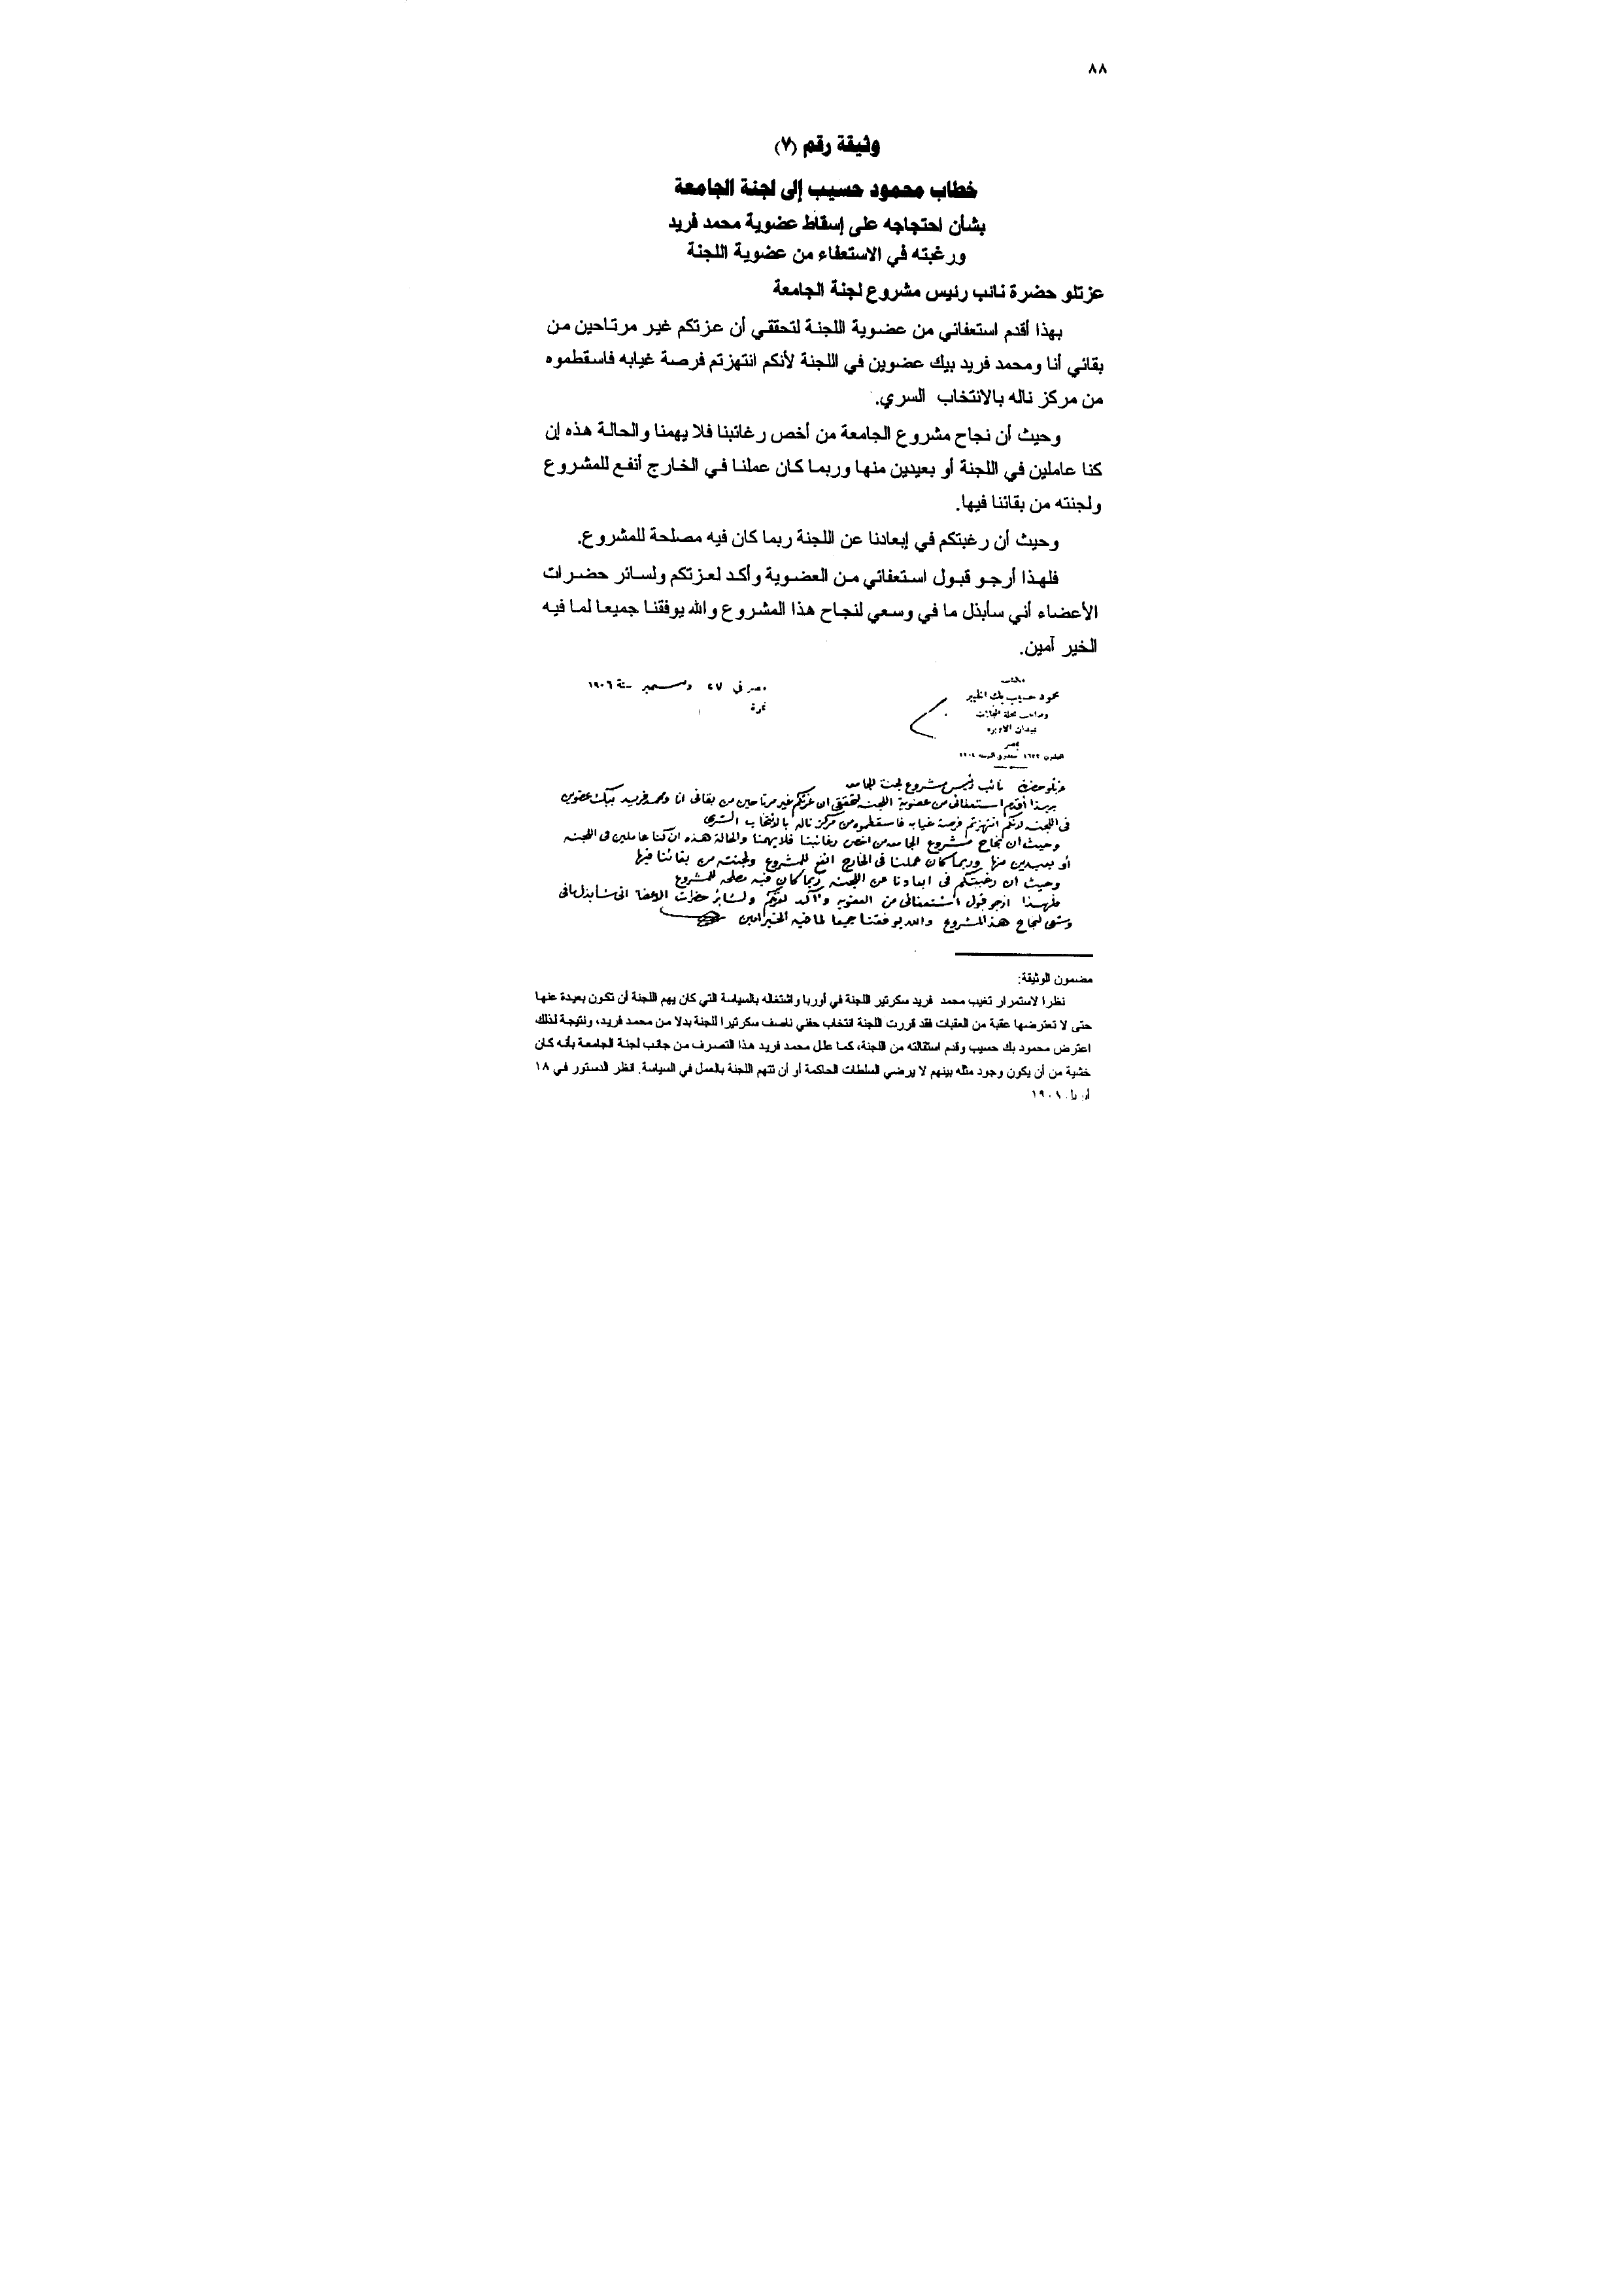 ٨٨
وثيقة رقم (٧)
خطاب محمود حسيب إلى لجنة الجامعة
بشأن احتجاجه على إسقاط عضوية محمد فريد
ورغبته في الاستعفاء من عضوية اللجنة
عزتلو حضرة نائب رئيس مشروع لجنة الجامعة
بهذا أقدم استعفائي من عضوية اللجنة لتحققي أن عزتكم غير مرتاحين من
بقائي أنا ومحمد فريد بيك عضوين في اللجنة لأنكم انتهزتم فرصة غيابه فاسقطموه
من مركز ناله بالانتخاب السري.
وحيث أن نجاح مشروع الجامعة من أخص رغائبنا فلا يهمنا والحالة هذه إن
كنا عاملين في اللجنة أو بعيدين منها وربما كان عملنا في الخارج أنفع للمشروع
ولجنته من بقائنا فيها.
وحيث أن رغبتكم في إبعادنا عن اللجنة ربما كان فيه مصلحة للمشروع.
فلهذا أرجو قبول استعفائي من العضوية وأكد لعزتكم ولسائر حضرات
الأعضاء أني سأبذل ما في وسعي لنجاح هذا المشروع والله يوفقنا جميعا لما فيه
الخير آمين.
مكتب
محمود حسيب بك الخبير
وصاحب مجلة المجلات
بميدان الاوبره
بمصر
مصر في ٢٧ دسمبر سنة ١٩٠٦
نمرة
عزتلو حضرة نائب رئيس مشروع لجنة الجامعه
بهذا أقدم استعفائى من عضوية اللجنه لتحققى ان عزتكم غير مرتاحين من بقائى انا ومحمد فريد بيك عضوين
فى اللجنه لانكم انتهزتم فرصة غيابه فاسقطموه من مركز ناله بالانتخاب السرى
وحيث ان نجاح مشروع الجامعه من اخص رغائبنا فلا يهمنا والحالة هذه ان كنا عاملين فى اللجنه
أو بعيدين منها وربما كان عملنا فى الخارج انفع للمشروع ولجنته من بقائنا فيها
وحيث ان رغبتكم فى ابعادنا عن اللجنه ربما كان فيه مصلحه للمشروع
فلهذا ارجو قبول استعفائى من العضويه وأكد لعزتكم ولسائر حضرات الاعضا انى سأبذل مافى
وسعى لنجاح هذا المشروع والله يوفقنا جميعا لما فيه الخير امين
مضمون الوثيقة:
نظرا لاستمرار تغيب محمد فريد سكرتير اللجنة في أوربا واشتغاله بالسياسة التي كان يهم اللجنة أن تكون بعيدة عنها
حتى لا تعترضها عقبة من العقبات فقد قررت اللجنة انتخاب حفني ناصف سكرتيرا للجنة بدلا من محمد فريد، ونتيجة لذلك
اعترض محمود بك حسيب وقدم استقالته من اللجنة، كما علل محمد فريد هذا التصرف من جانب لجنة الجامعة بأنه كان
خشية من أن يكون وجود مثله بينهم لا يرضي السلطات الحاكمة أو أن تتهم اللجنة بالعمل في السياسة. انظر الدستور في ١٨